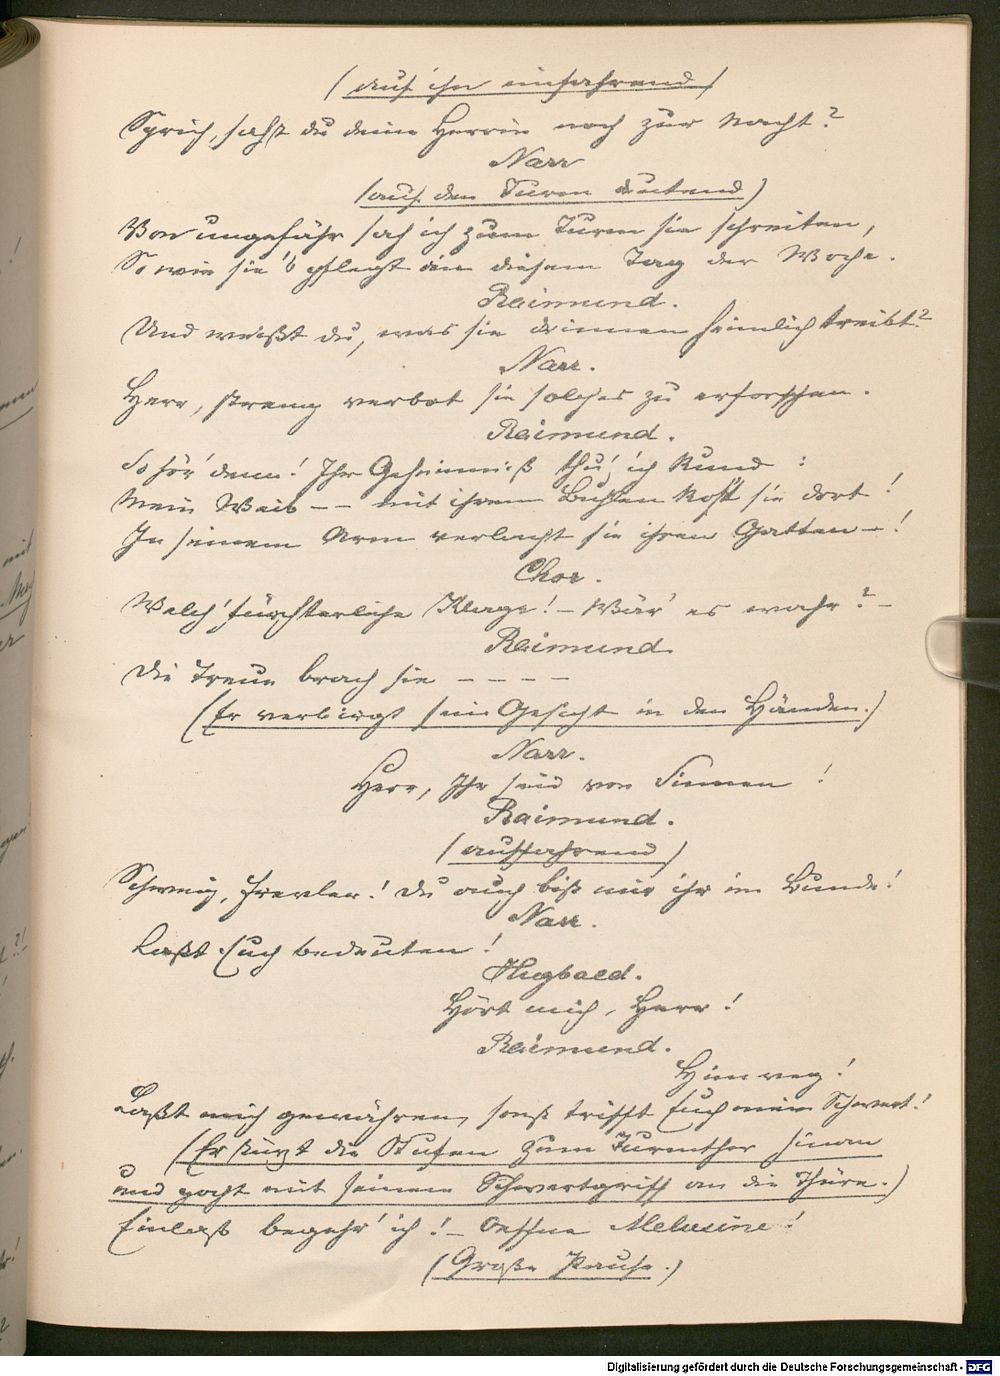 (auf ihn einfahrend)
Sprich, sahst du deine Herrin noch zur Nacht?
Narr
(auf den Turm deutend)
Von ungefähr sah ich zum Turm sie schreiten,
So wie sie's pflegt an diesem Tag der Woche.
Raimund.
Und weißt du, was sie drinnen heimlich treibt?
Narr.
Herr, streng verbot sie solches zu erforschen.
Raimund.
So hör' denn! Ihr Geheimniß thu' ich Kund:
Mein Weib -- mit ihrem Buhlen kost sie dort!
In seinem Arm verlacht sie ihren Gatten -!
Chor.
Welch' fürchterliche Klage! - Wär' es wahr? -
Raimund.
Die Treue brach sie - - - -
(Er verbirgt sein Gesicht in den Händen.)
Narr.
Herr, Ihr seid von Sinnen!
Raimund.
(auffahrend)
Schweig, Frevler! Du auch bist mir ihr im Bunde!
Narr.
Laßt Euch bedeuten!
Hugbald.
Hört mich, Herr!
Raimund.
Hinweg!
Laßt mich gewähren, sonst trifft Euch mein Schwert!
(Er stürzt die Stufen zum Turmthor hinan
und pocht mit seinem Schwertgriff an die Thüre.)
Einlaß begehr' ich! - Oeffne Melusine!
(Große Pause.)
Digitalisierung gefördert durch die Deutsche Forschungsgemeinschaft - DFG